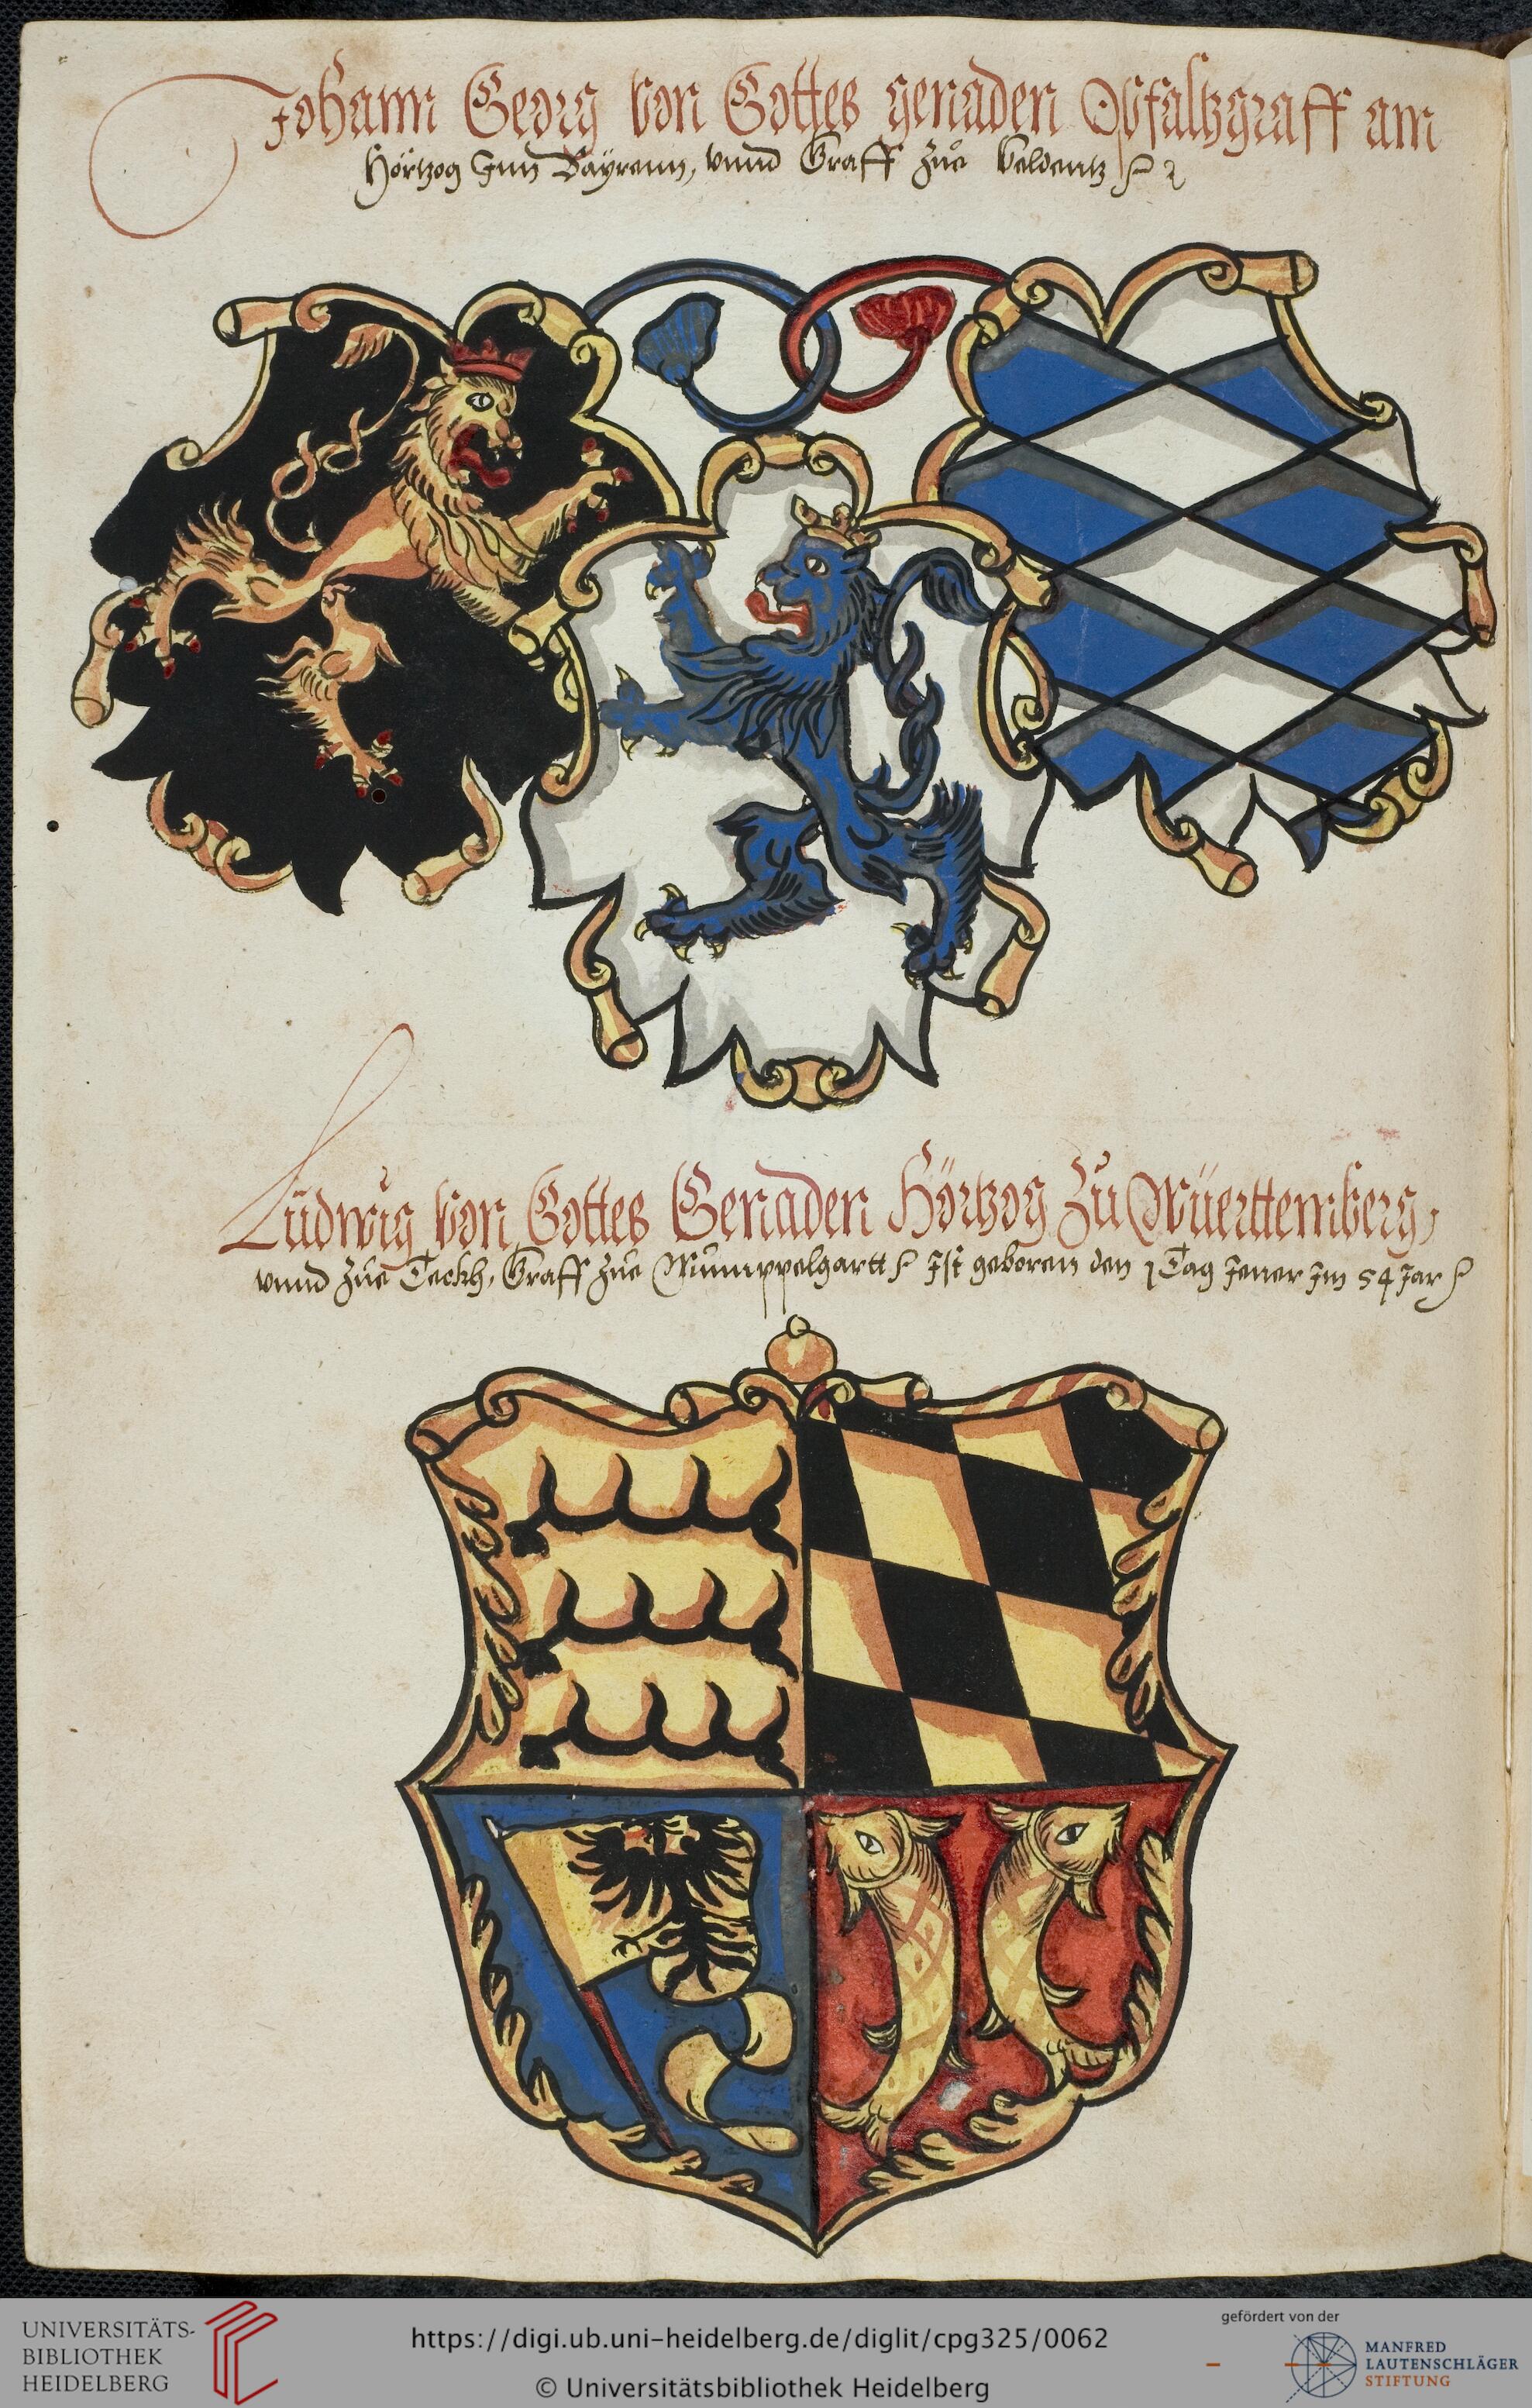 Johann Georg von Gottes genaden Pfaltzgraff am
Hörtzog Inn Bayrenn, vnnd Graff zůe Veldentz
Lüdwig von Gottes Genaden Hörtzog Zu Wüerttemberg,
vnnd zůe Teckh, Graff zůe Mümppelgartt Ist geboren den 1 Tag Jener Jm 54 Jar
UNIVERSITÄTS-
BIBLIOTHEK
HEIDELBERG
https://digi.ub.uni-heidelberg.de/diglit/cpg325/0062
© Universitätsbibliothek Heidelberg
gefördert von der
MANFRED
LAUTENSCHLÄGER
STIFTUNG